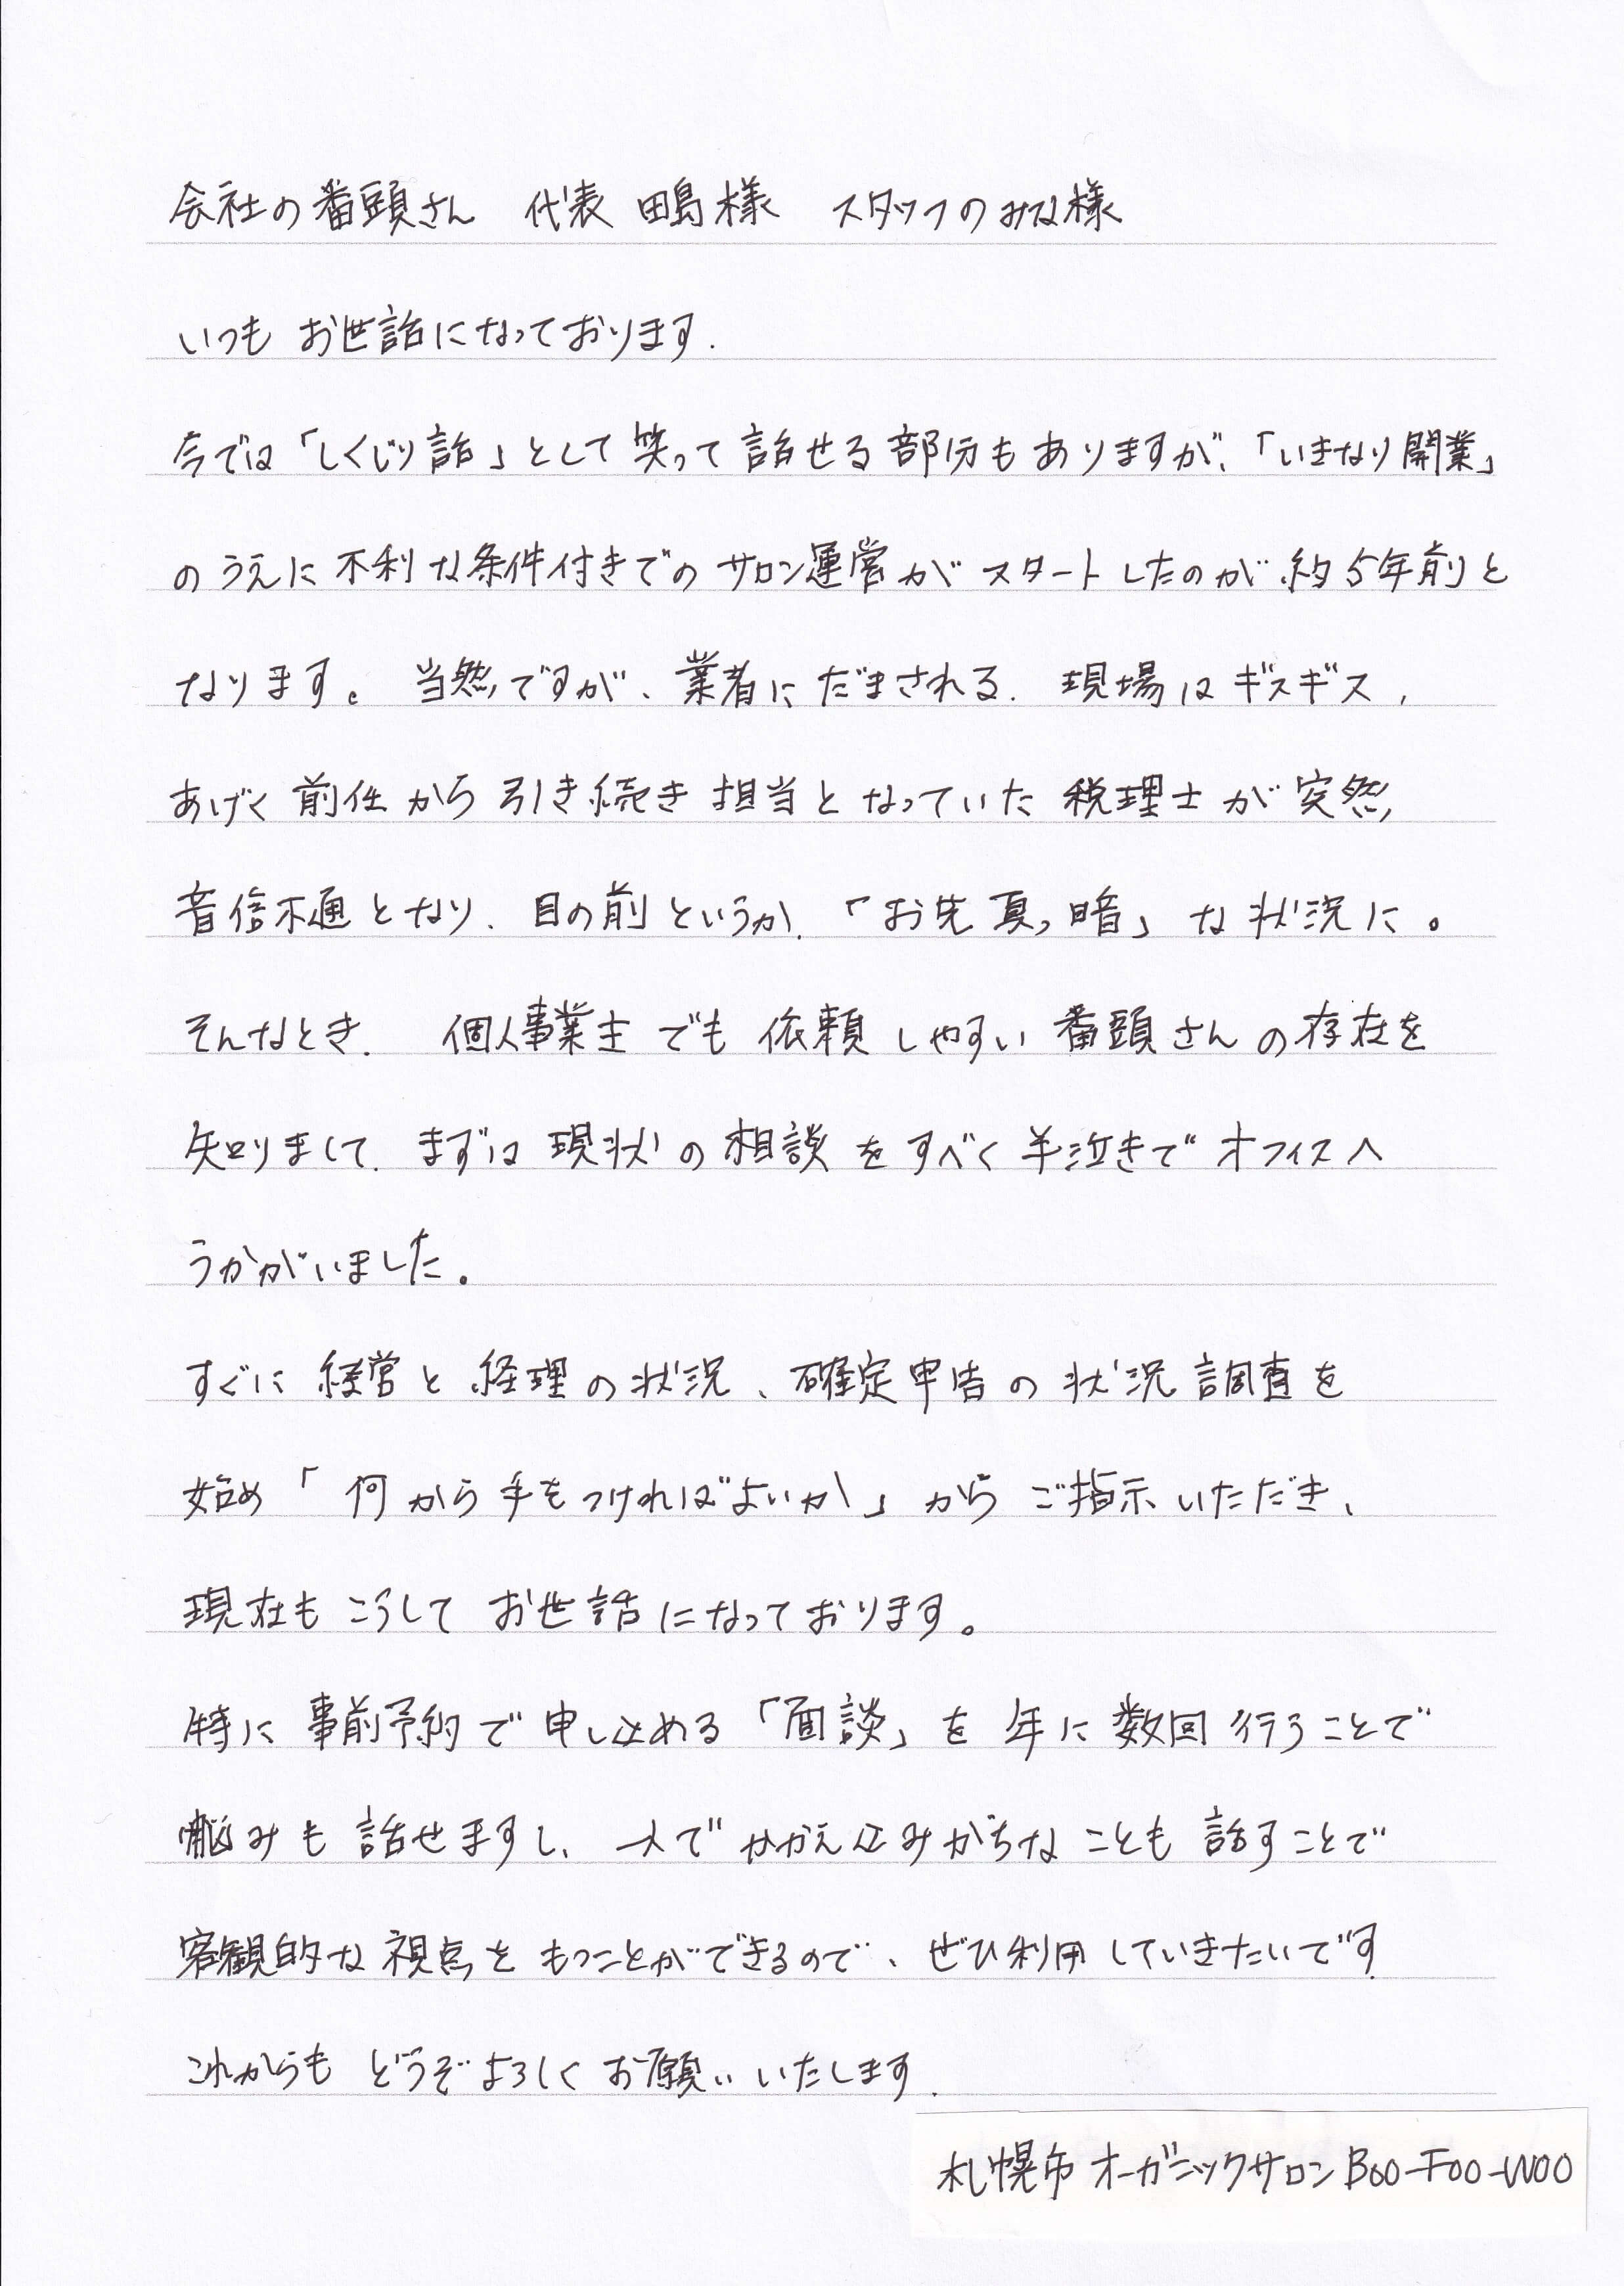 会社の番頭さん　代表 田島様　スタッフのみな様
いつも お世話になっております.
今では「しくじり話」として笑って話せる部分もありますが、「いきなり開業」
のうえに不利な条件付きでのサロン運営がスタートしたのが約5年前と
なります。 当然ですが、業者にだまされる. 現場はギスギス,
あげく前任から引き続き担当となっていた税理士が突然,
音信不通となり、目の前というか、「お先真っ暗」な状況に。
そんなとき、 個人事業主でも依頼しやすい番頭さんの存在を
知りまして、まずは現状の相談をすべく半泣きでオフィスへ
うかがいました。
すぐに経営と経理の状況、確定申告の状況調査を
始め「何から手をつければよいか」からご指示いただき、
現在もこうしてお世話になっております。
特に事前予約で申し込める「面談」を年に数回行うことで
悩みも話せますし、一人でかかえ込みがちなことも話すことで
客観的な視点をもつことができるので、ぜひ利用していきたいです.
これからもどうぞよろしくお願いいたします.
札幌市 オーガニックサロン Boo-Foo-Woo